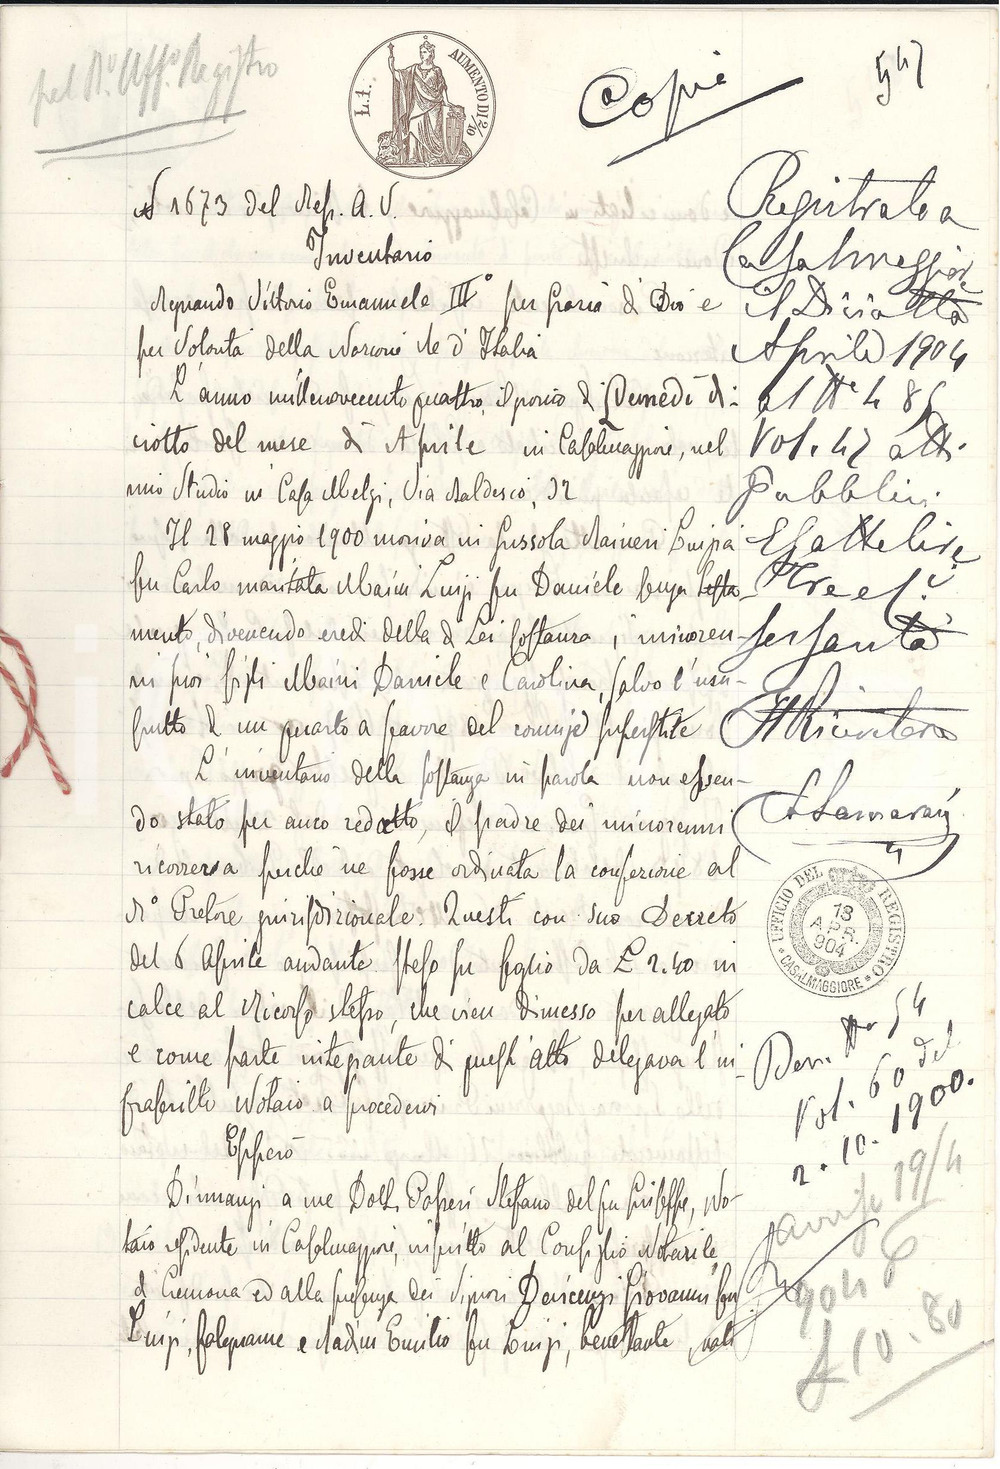 pel R.º Uff.º Registro
L.1.
AUMENTO DI 2/10
Copia
547
N 1673 del Rep. A. V.
Inventario
Regnando Vittorio Emanuele IIIº per grazia di Dio e
per Volontà della Nazione Re d'Italia
L'anno millenovecento quattro, il giorno di Venerdì di-
ciotto del mese di Aprile in Casalmaggiore, nel
mio Studio in Casa Melzi, Via Baldesco, 32
Il 28 maggio 1900 moriva in Gussola Raineri Luigia
fu Carlo maritata Maini Luigi fu Daniele senza testa-
mento, divenendo eredi della di Lei sostanza, i minoren-
ni suoi figli Maini Daniele e Carolina, salvo l'usu-
frutto di un quarto a favore del coniuge superstite
L'inventario della sostanza in parola non essen-
do stato per anco redatto, il padre dei minorenni
ricorreva perchè ne fosse ordinata la confezione al
R° Pretore giurisdizionale. Questi con suo Decreto
del 6 Aprile andante steso su foglio da £ 2.40 in
calce al Ricorso stesso, che vien dimesso per allegato
e come parte integrante di quest'atto delegava l'in-
frascritto Notaio a procedervi
Epperò
Dinnanzi a me Dott. Stefano del fu Giuseppe, No-
taio residente in Casalmaggiore, inscritto al Consiglio Notarile
di Cremona ed alla presenza dei Signori Giovanni fu
Luigi, falegname e Emilio fu Luigi, benestante, nati
Registrato a
Casalmaggiore
il Diciotto
Aprile 1904
al Nº 486
Vol. 47 atti
Pubblici
Esatte lire
Tre e C.i
sessanta
Il Ricevitore
UFFICIO DEL REGISTRO
18
APR.
904
* CASALMAGGIORE *
Den. Nº 54
Vol. 60 del
2.10.1900.
19/4
904
£ 10.80